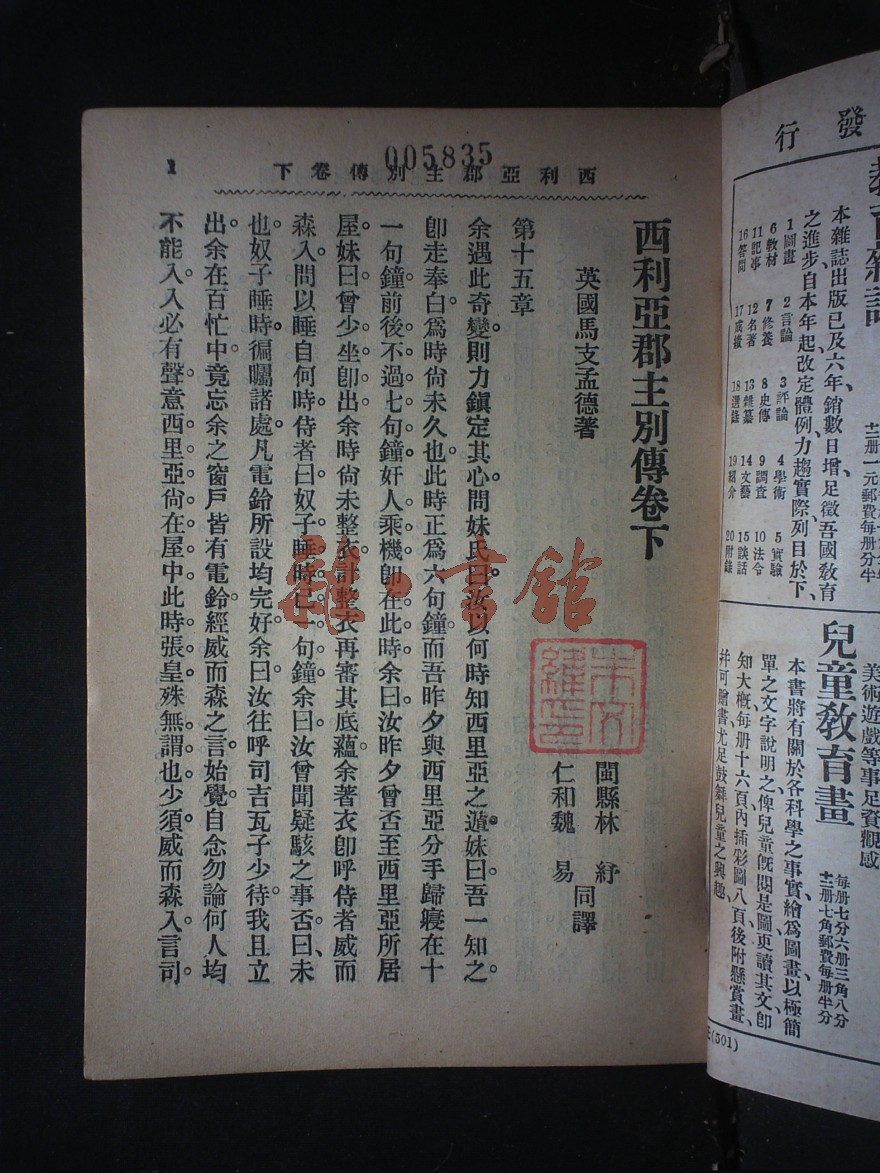 005835
西利亞郡主別傳卷下
1
西利亞郡主別傳卷下
英國馬支孟德著
閩縣林紓
仁和魏易
同譯
第十五章
余遇此奇變則力鎭定其心問妹氏曰汝以何時知西里亞之遁妹曰吾一知之。
卽走奉白爲時尙未久也此時正爲六句鐘而吾昨夕與西里亞分手歸寢在十
一句鐘前後不過七句鐘奸人乘機卽在此時余曰汝昨夕曾否至西里亞所居
屋。妹曰曾少坐卽出余時尙未整衣計整衣再審其底蘊余著衣卽呼侍者威而
森入問以睡自何時侍者曰奴子睡時已一句鐘余曰汝曾聞疑駭之事否曰、未
也奴子睡時。徧囑諸處。凡電鈴所設均完好。余曰汝往呼司吉瓦子少待。我且立
出。余在百忙中。竟忘余之窗戶皆有電鈴。經威而森之言。始覺。自念勿論何人均
不能入。入必有聲。意西里亞尙在屋中。此時張皇殊無謂也。少須威而森入言司
發行
本雜誌出版已及六年、銷數日增足徵吾國敎育
之進步自本年起改定體例力趨實際列目於下、
1圖畫 2言論 3評論 4學術 5實驗
6敎材 7修養 8史傳 9調查 10法令
11記事 12名著 13雜纂 14文藝 15談話
16答問 17成績 18選錄 19紹介 20附錄
兒童敎育畫
每册七分六册三角八分
十二册七角郵費每册半分
美術遊戲等事足資觀感
本書將有關於各科學之事實、繪爲圖畫、以極簡
單之文字說明之、俾兒童旣閱是圖更讀其文、卽
知大槪每册十六頁內插彩圖八頁後附懸賞畫、
幷可贈書尤足鼓舞兒童之興趣、
(501)